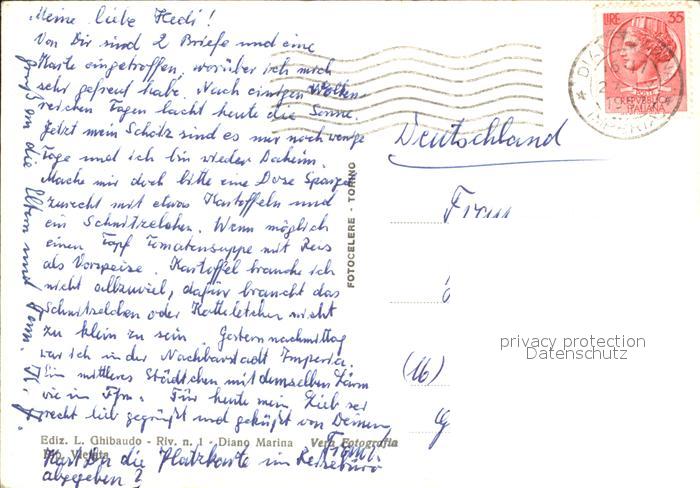 Meine liebe Hedi!
Von Dir sind 2 Briefe und eine
Karte eingetroffen, worüber ich mich
sehr gefreut habe. Nach einigen Wolken-
reichen Tagen lacht heute die Sonne.
Jetzt mein Schatz sind es nur noch wenige
Tage und ich bin wieder Daheim.
Mache mir doch bitte eine Dose Spargel
zurecht mit etwas Kartoffeln und
ein Schnitzelchen. Wenn möglich
einen Topf Tomatensuppe mit Reis
als Vorspeise. Kartoffel brauche ich
nicht allzuviel, dafür braucht das
Schnitzelchen oder Kotteletchen nicht
zu klein zu sein. Gestern nachmittag
war ich in der Nachbarstadt Imperia.
Ein mittleres Städtchen mit demselben Lärm
wie in Ffm. Für heute mein Lieb sei
recht lieb gegrüßt und geküßt von Deinem
Franz.
Hast Du die Platzkarte im Reisebüro
abgegeben?
Gruß an die Eltern und
Ediz. L. Ghibaudo - Riv. n. 1 - Diano Marina
Vera Fotografia
FOTOCELERE - TORINO
LIRE 35
REPVBBLICA
ITALIANA
DIANO
IMPERIA
Deutschland
Frau
(16)
privacy protection
Datenschutz